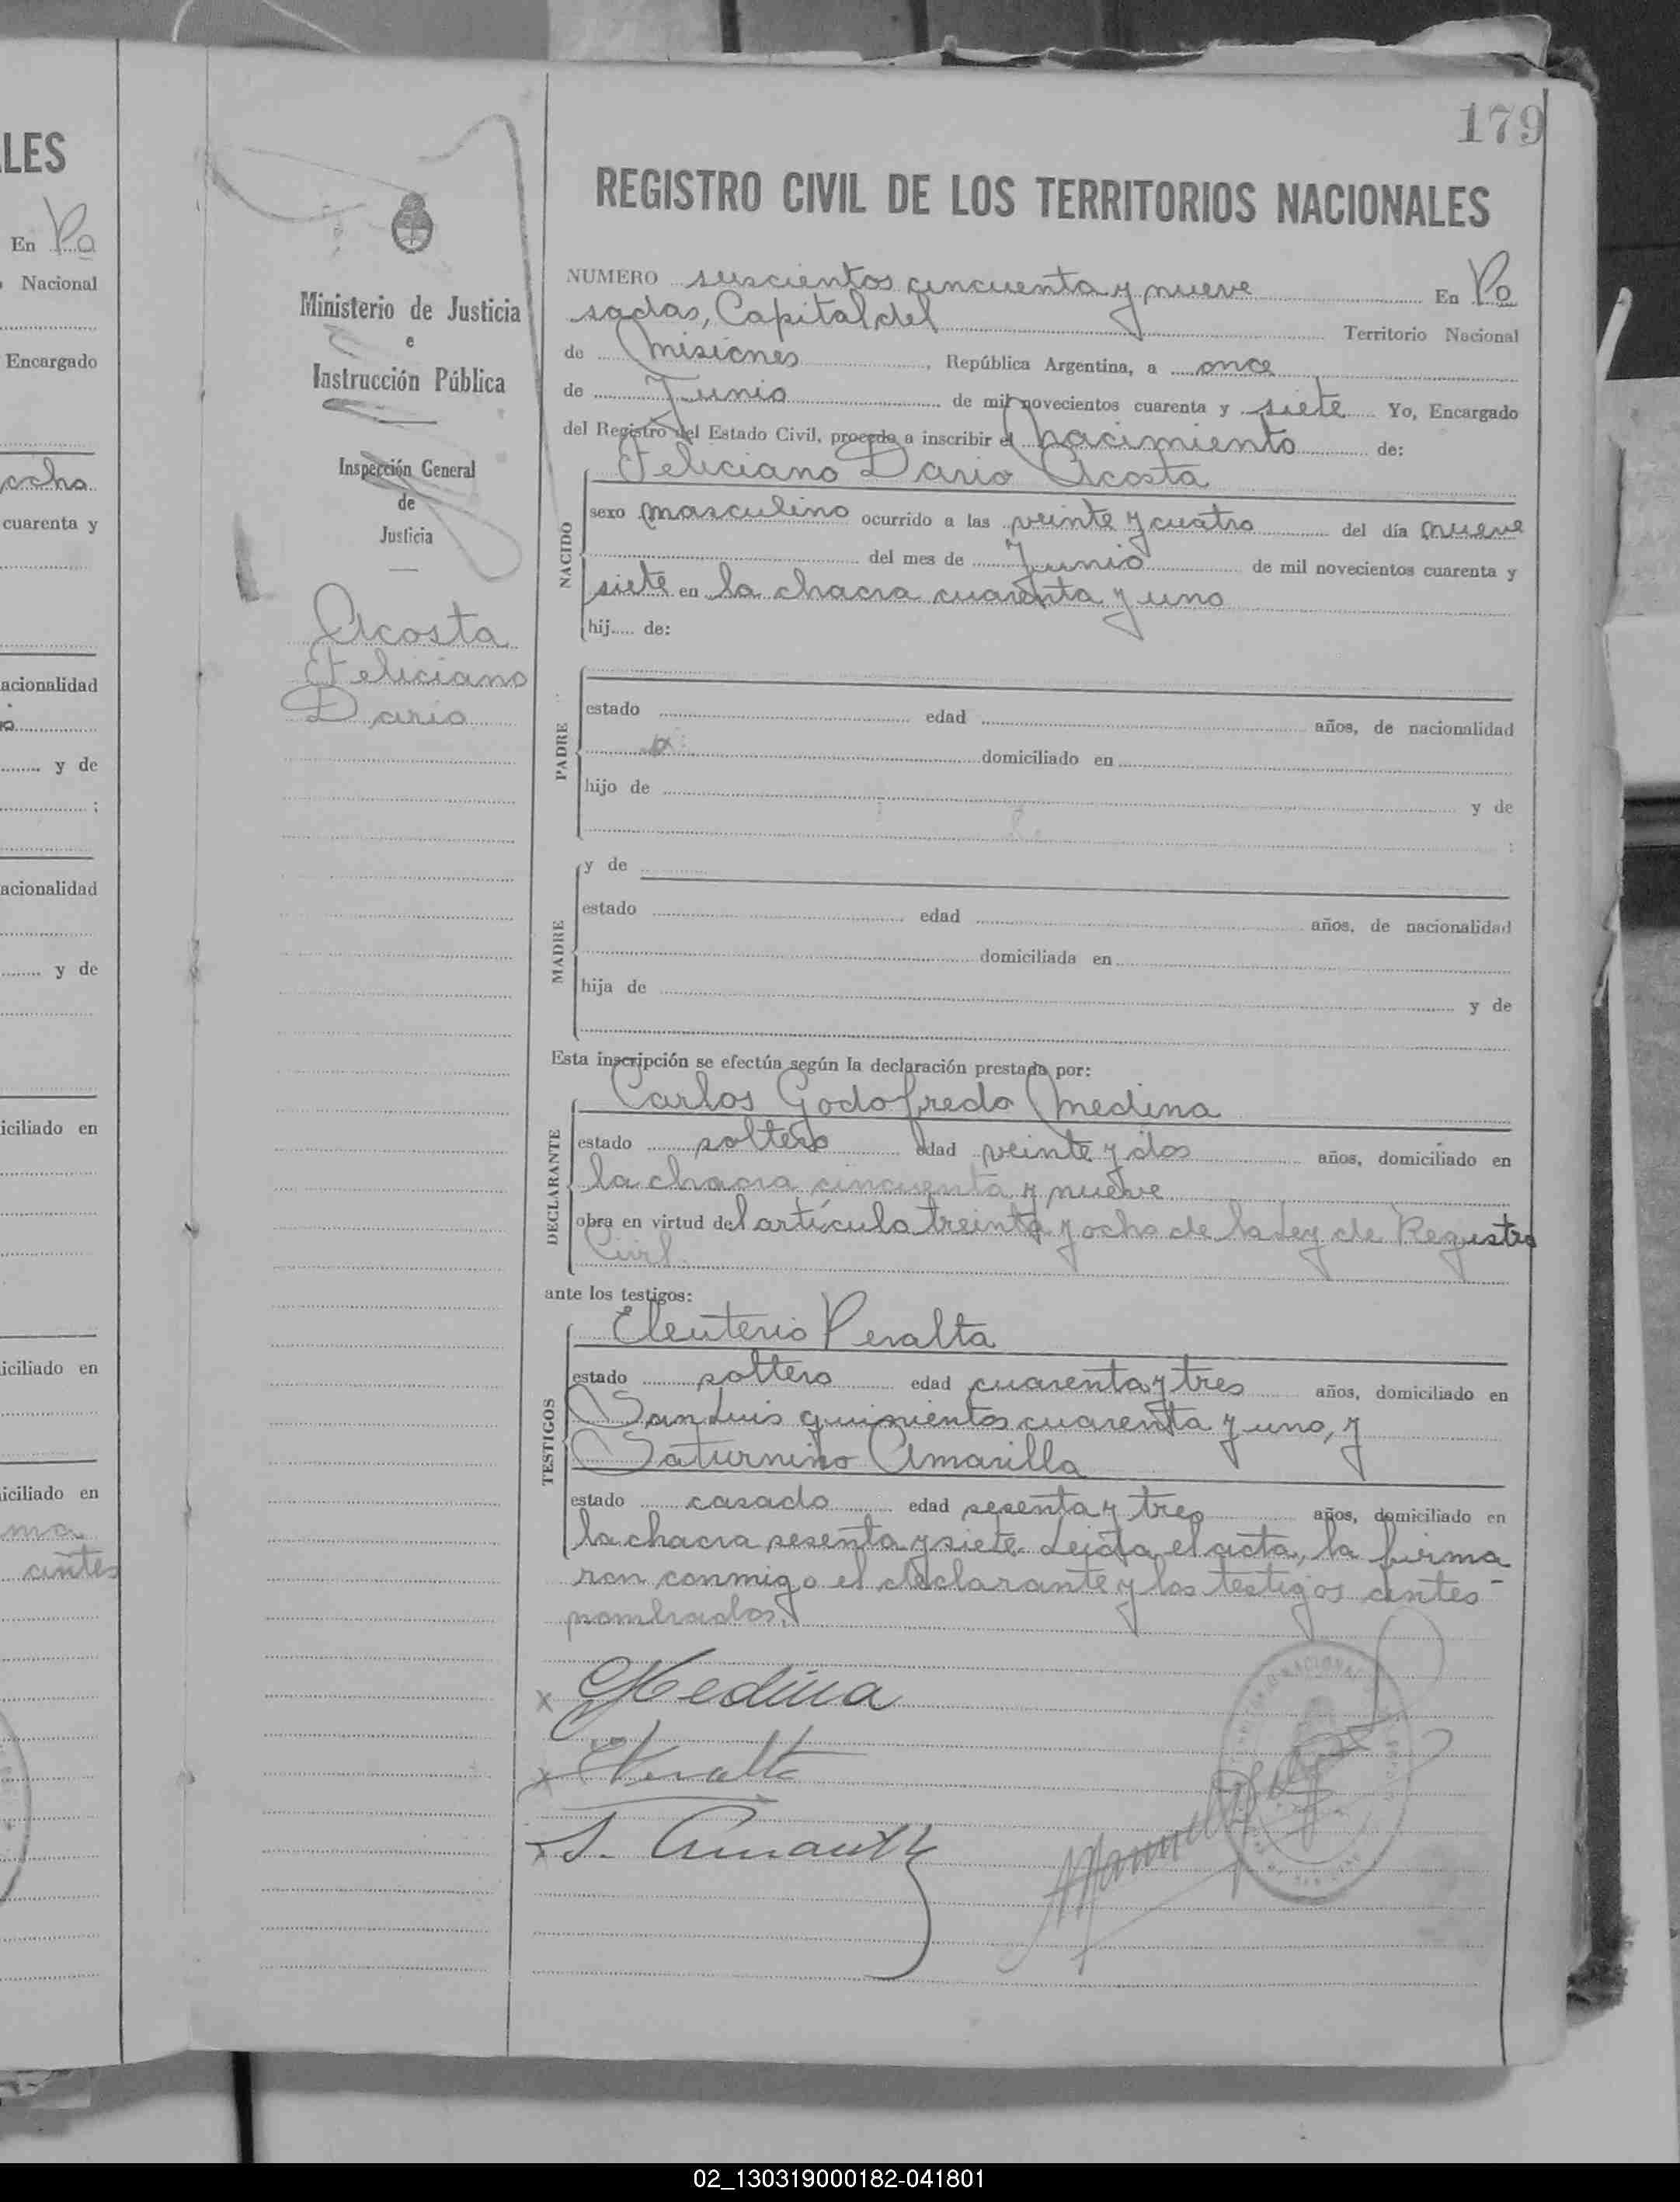 179
LES
REGISTRO CIVIL DE LOS TERRITORIOS NACIONALES
En Po
Nacional
Encargado
ocho
cuarenta y
acionalidad
y de
;
acionalidad
y de
iciliado en
iciliado en
iciliado en
ma
antes
Ministerio de Justicia
e
Instrucción Pública
Inspección General
de
Justicia
Acosta
Feliciano
Dario
NUMERO suscientos cincuenta y nueve En Po
sadas, Capital del Territorio Nacional
de Misiones, República Argentina, a once
de Junio de mil novecientos cuarenta y siete Yo, Encargado
del Registro del Estado Civil, procedo a inscribir el nacimiento de:
Feliciano Dario Acosta
NACIDO
sexo masculino ocurrido a las veinte y cuatro del día nueve
del mes de Junio de mil novecientos cuarenta y
siete en la chacra cuarenta y uno
hij..... de:
PADRE
estado edad años, de nacionalidad
domiciliado en
hijo de y de
;
y de
MADRE
estado edad años, de nacionalidad
domiciliada en
hija de y de
Esta inscripción se efectúa según la declaración prestada por:
Carlos Godofredo Medina
DECLARANTE
estado soltero edad veinte y dos años, domiciliado en
la chacra cincuenta y nueve
obra en virtud del artículo treinta y ocho de la Ley de Registro
Civil.
ante los testigos:
Eleuterio Peralta
TESTIGOS
estado soltero edad cuarenta y tres años, domiciliado en
San Luis quinientos cuarenta y uno, y
Saturnino Amarilla
estado casado edad sesenta y tres años, domiciliado en
la chacra sesenta y siete. Leida el acta, la firma
ron conmigo el declarante y los testigos antes-
nombrados.
x Medina
x Peralta
x S. Amarilla
Manuel
02_130319000182-041801